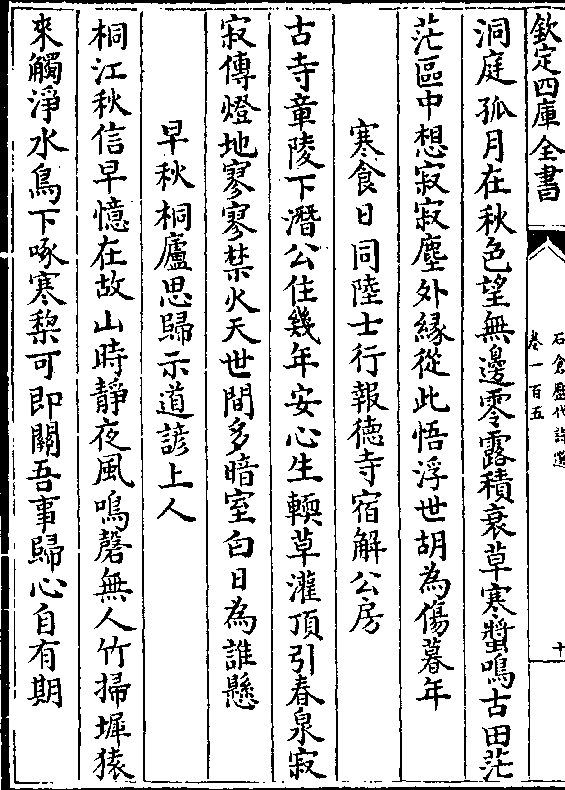 欽定四庫全書
石倉歷代詩選
卷一百五
十
洞庭孤月在秋色望無邊零露積衰草寒螿鳴古田茫
茫區中想寂寂塵外緣從此悟浮世胡為傷暮年
寒食日同陸士行報徳寺宿解公房
古寺章陵下潛公住幾年安心生輭草灌頂引春泉寂
寂傳燈地寥寥禁火天世間多暗室白日為誰懸
早秋桐廬思歸示道諺上人
桐江秋信早憶在故山時靜夜風鳴磬無人竹掃墀猿
來觸淨水鳥下啄寒棃可即關吾事歸心自有期